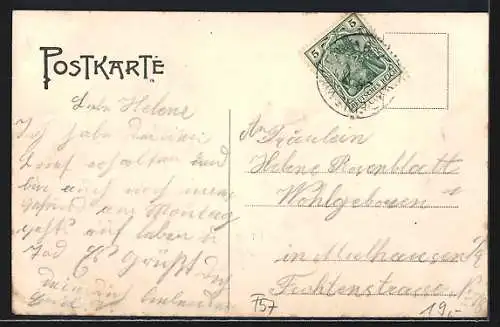 POSTKARTE
5 5
DEUTSCHES REICH
Liebe Helene
Ich habe deinen
Brief erhalten und
bin auch noch immer
gesund am Montag
geht auf Leben u
Tod Es Grüßt dich
An Fräulein
Helene Rosenblatt
Wohlgeboren
in Mülhausen i/E
Fichtenstrasse
F57
19,-